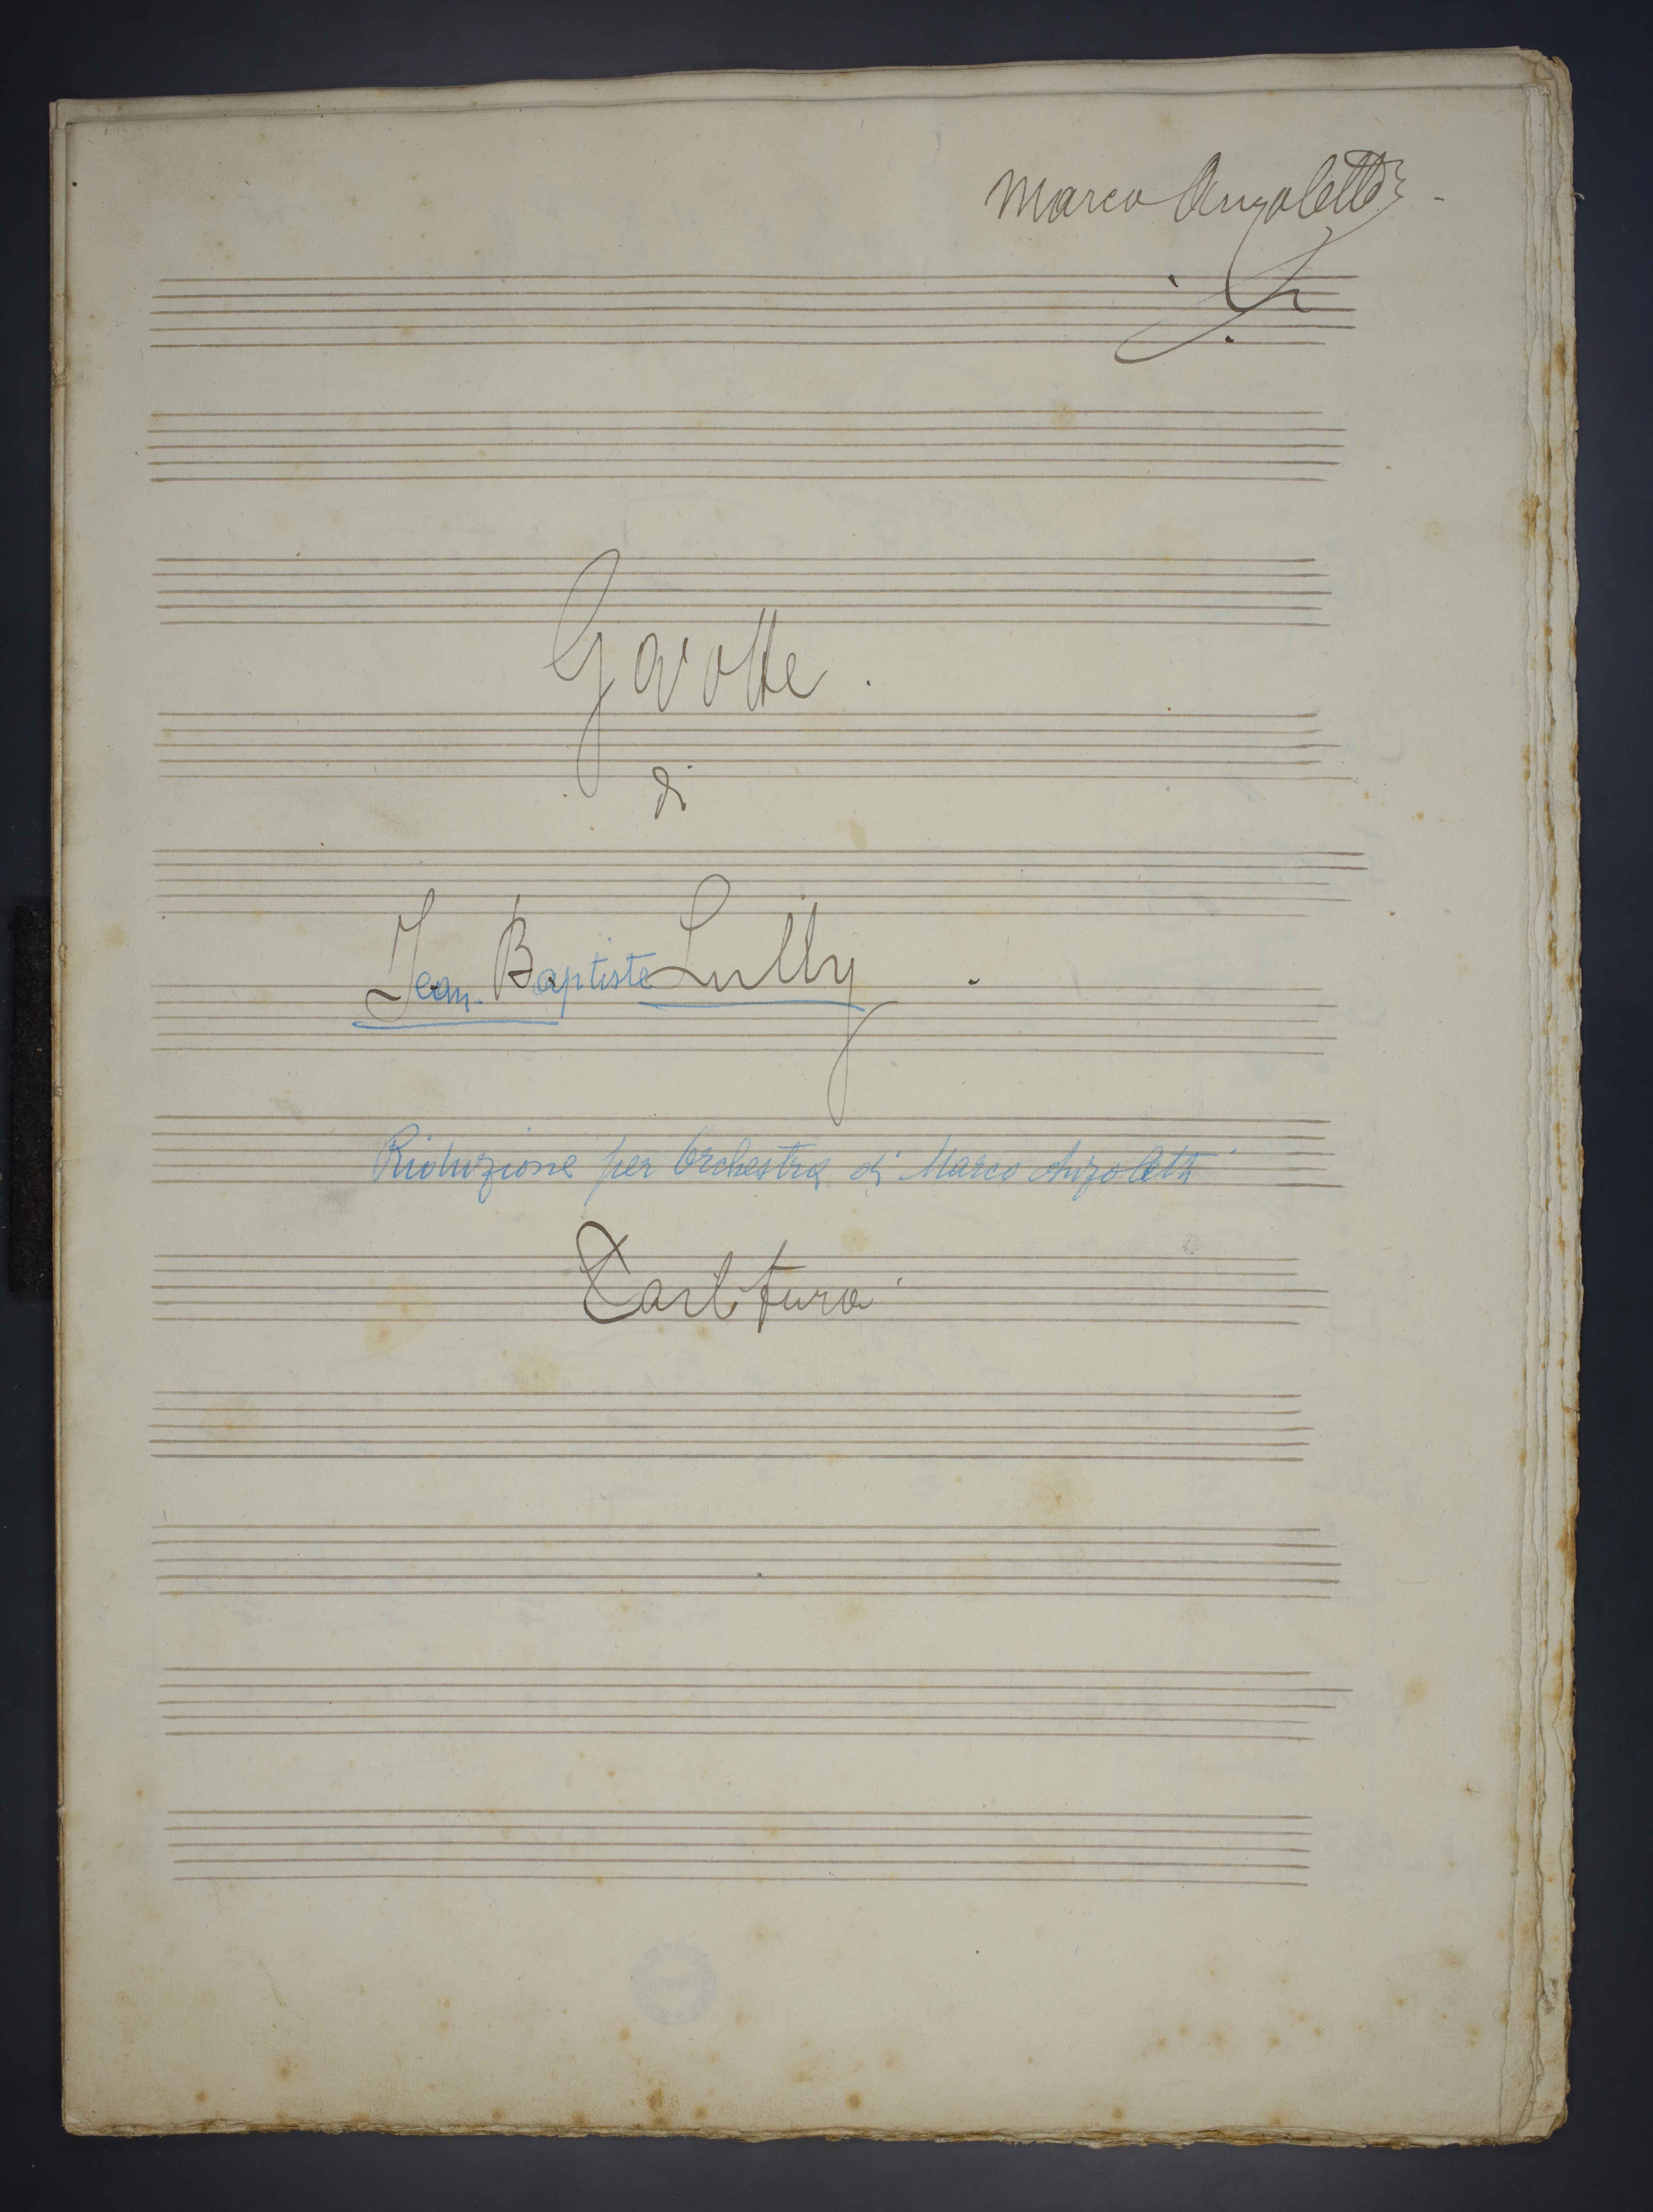 Marco Anzoletti
Gavotte.
di
Jean-Baptiste Lully.
Riduzione per Orchestra di Marco Anzoletti
Partitura